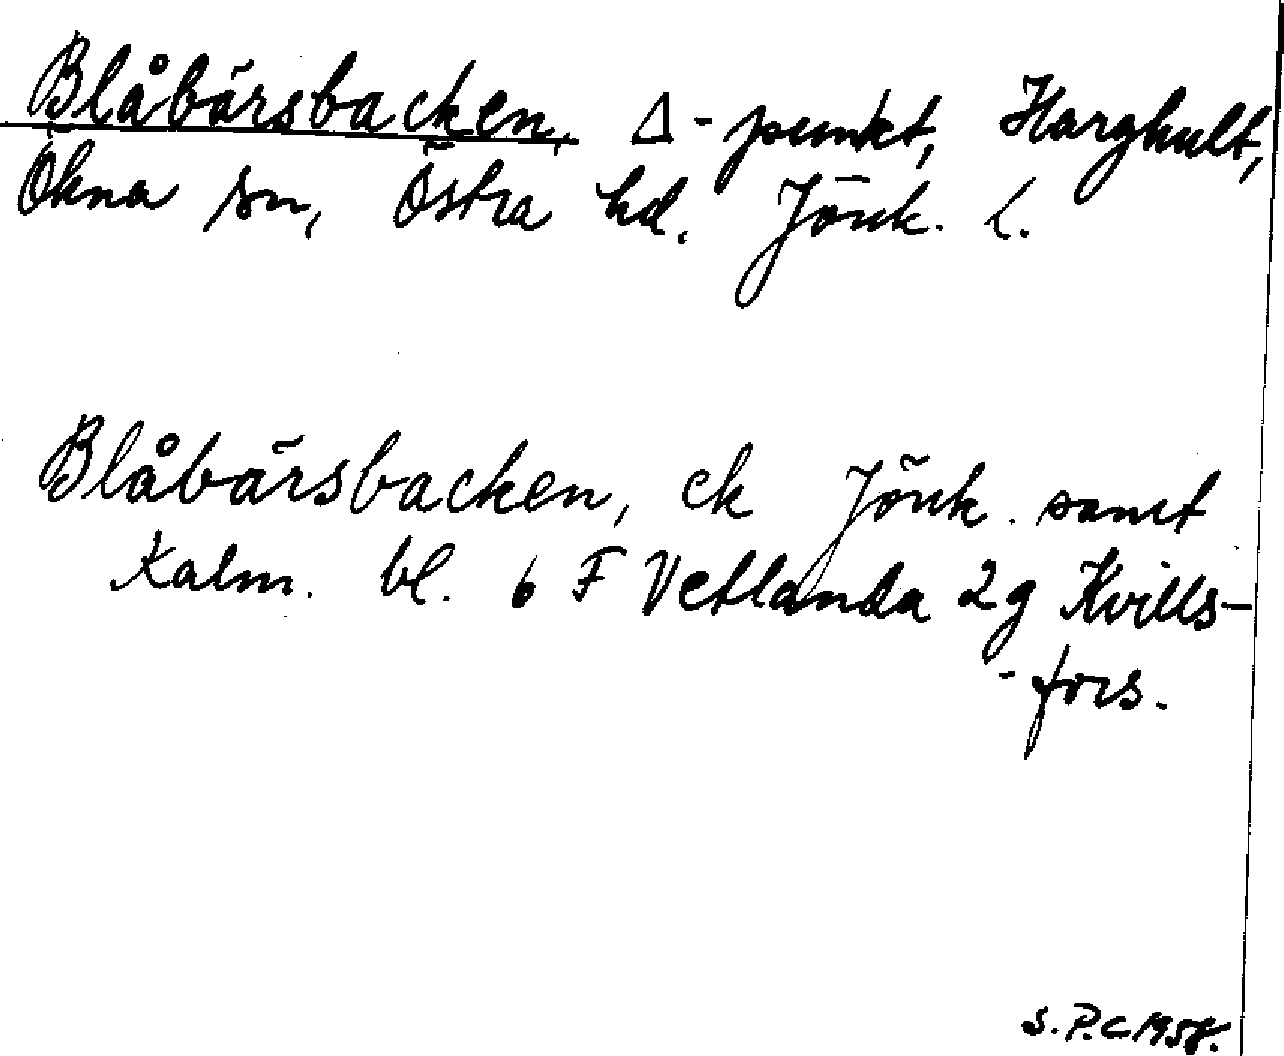 Blåbärsbacken, Δ-punkt, Harghult,
Ökna sn, Östra hd. Jönk. l.
Blåbärsbacken, ek Jönk. samt
Kalm. bl. 6 F Vetlanda 2g Kvills-
-fors.
S.P.C 1958.